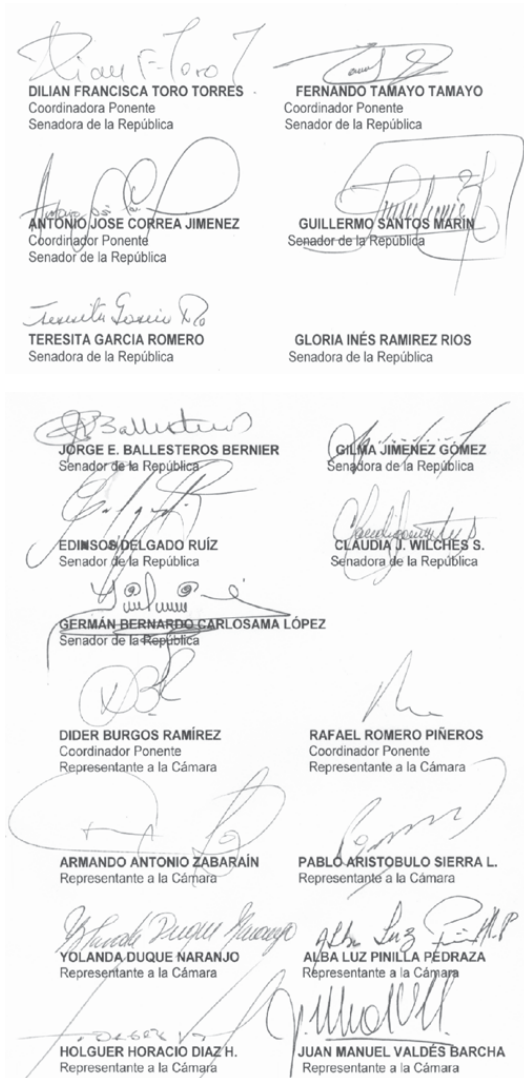 Dilian F. Toro T
DILIAN FRANCISCA TORO TORRES
Coordinadora Ponente
Senadora de la República
FERNANDO TAMAYO TAMAYO
Coordinador Ponente
Senador de la República
ANTONIO JOSE CORREA JIMENEZ
Coordinador Ponente
Senador de la República
GUILLERMO SANTOS MARÍN
Senador de la República
Teresita García Ro
TERESITA GARCIA ROMERO
Senadora de la República
GLORIA INÉS RAMIREZ RIOS
Senadora de la República
Ballesteros
JORGE E. BALLESTEROS BERNIER
Senador de la República
GILMA JIMENEZ GÓMEZ
Senadora de la República
EDINSON DELGADO RUÍZ
Senador de la República
CLAUDIA J. WILCHES S.
Senadora de la República
GERMÁN BERNARDO CARLOSAMA LÓPEZ
Senador de la República
DIDER BURGOS RAMÍREZ
Coordinador Ponente
Representante a la Cámara
RAFAEL ROMERO PIÑEROS
Coordinador Ponente
Representante a la Cámara
ARMANDO ANTONIO ZABARAÍN
Representante a la Cámara
PABLO ARISTOBULO SIERRA L.
Representante a la Cámara
Yolanda Duque Naranjo
YOLANDA DUQUE NARANJO
Representante a la Cámara
Alba Luz Pinilla P
ALBA LUZ PINILLA PEDRAZA
Representante a la Cámara
HOLGUER HORACIO DIAZ H.
Representante a la Cámara
JUAN MANUEL VALDÉS BARCHA
Representante a la Cámara